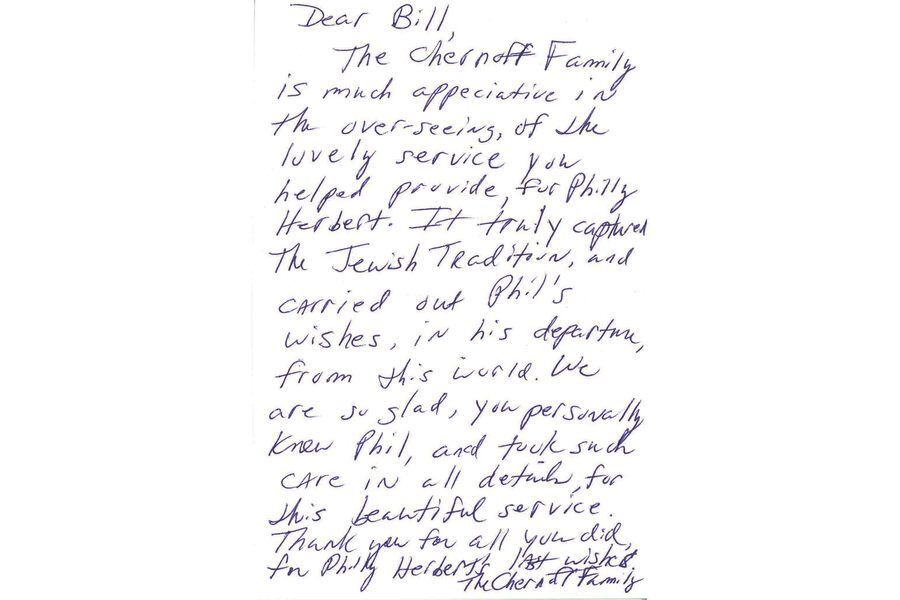 Dear Bill,
The Chernoff Family
is much appeciative in
the over-seeing, of the
lovely service you
helped provide, for Philly
Herbert. It truly captured
The Jewish Tradition, and
carried out Phil's
wishes, in his departure,
from this world. We
are so glad, you personally
knew Phil, and took such
care in all details, for
this beautiful service.
Thank you for all you did,
for Philly Herbert's last wishes
The Chernoff Family